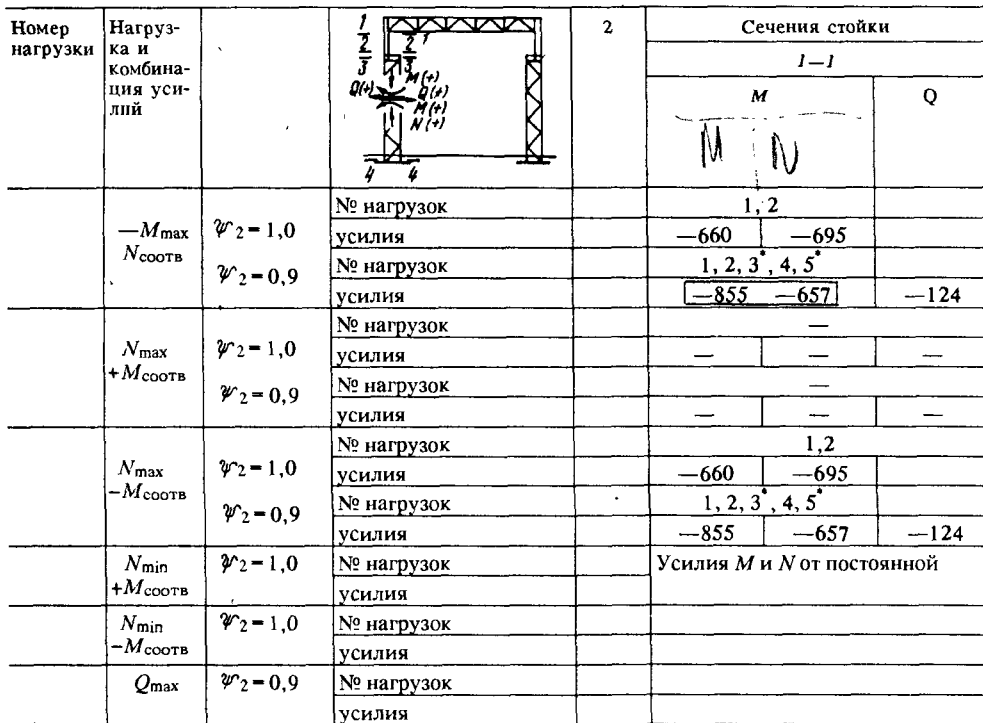 Номер нагрузки
Нагруз-
ка и
комбина-
ция уси-
лий
1
2
3
1
2
3
M(+)
Q(+)
Q(+)
M(+)
N(+)
4 4
2
Сечения стойки
1—1
M Q
M N
—Mmax
Nсоотв
ψ2=1,0
ψ2=0,9
№ нагрузок 1, 2
усилия —660 —695
№ нагрузок 1, 2, 3*, 4, 5*
усилия —855 —657 —124
Nmax
+Mсоотв
ψ2=1,0
ψ2=0,9
№ нагрузок —
усилия — — —
№ нагрузок —
усилия — — —
Nmax
-Mсоотв
ψ2=1,0
ψ2=0,9
№ нагрузок 1,2
усилия —660 —695
№ нагрузок 1, 2, 3*, 4, 5*
усилия —855 —657 —124
Nmin
+Mсоотв
ψ2=1,0
№ нагрузок Усилия M и N от постоянной
усилия
Nmin
-Mсоотв
ψ2=1,0
№ нагрузок
усилия
Qmax
ψ2=0,9
№ нагрузок
усилия